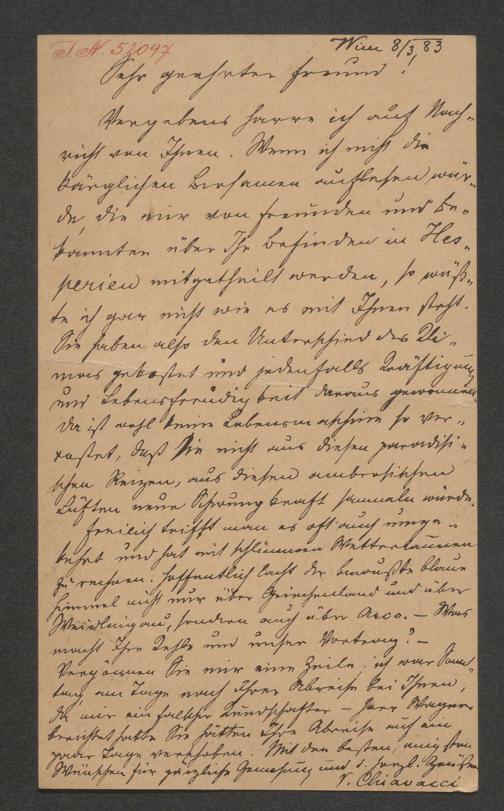 I. N. 53097
Wien 8/3, 83
Sehr geehrter Freund!
Vergebens harre ich auf Nach-
richt von Ihnen. Wenn ich nicht die
kärglichen Brosamen auflesen wür-
de, die mir von Freunden und Be-
kannten über Ihr Befinden in Hes-
perien mitgetheilt werden, so wüß-
te ich gar nicht wie es mit Ihnen steht.
Sie haben also den Unterschied des Kli-
mas gekostet und jedenfalls Kräftigung
und Lebensfreudigkeit daraus gewonnen.
Da ist wohl keine Lebensmaschine so ver-
rostet, daß sie nicht aus diesen paradisi-
schen Reizen, aus diesen ambrosischen
Lüften neue Schwungkraft sammeln würde.
Freilich trifft man es oft auch umge-
kehrt und hat mit schlimmen Wetterlaunen
zu rechnen. Hoffentlich lacht der bewußte blaue
Himmel nicht nur über Griechenland und über
Weidlingau, sondern auch über Arco. — Was
macht Ihre Kehle und unser Vortrag? —
Vergönnen Sie mir eine Zeile. Ich war Sonn-
tag am Tage nach Ihrer Abreise bei Ihnen,
da mir ein falscher Kundschafter — Herr Wagner
berichtet hatte Sie hätten Ihre Abreise auf ein
paar Tage verschoben. Mit den besten, innigsten
Wünschen für gänzliche Genesung und d. herzl. Grüßen
V. Chiavacci